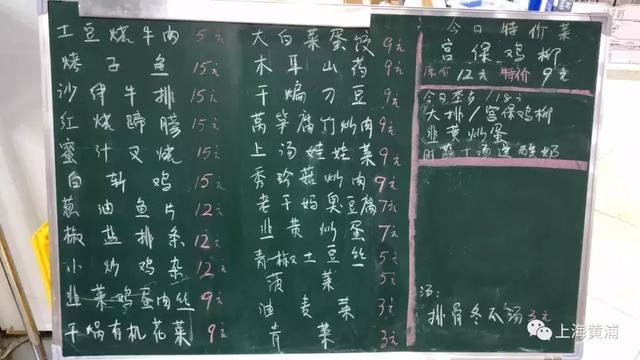 土豆烧牛肉 5元
烤子鱼 15元
沙律牛排 15元
红烧蹄膀 15元
蜜汁叉烧 15元
白斩鸡 15元
葱油鱼片 12元
椒盐排条 12元
小炒鸡杂 12元
韭菜鸡蛋肉丝 9元
干锅有机花菜 9元
大白菜蛋饺 9元
木耳山药 9元
干煸刀豆 9元
莴笋腐竹炒肉 9元
上汤娃娃菜 9元
秀珍菇炒肉 9元
老干妈臭豆腐 7元
韭黄炒蛋 7元
青椒土豆丝 5元
菠菜 5元
油麦菜 3元
青菜 3元
今日特价菜
宫保鸡柳
原价12元 特价9元
今日套餐/18元
大排/宫保鸡柳
韭黄炒蛋
时蔬+汤送酸奶
汤:
排骨冬瓜汤3元
上海黄浦